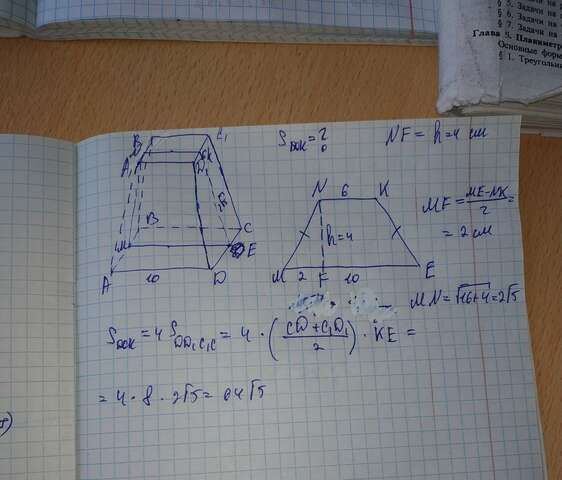 § 5. Задачи на
§ 6. Задачи на
§ 7. Задачи на
Глава 5. Планиметр
Основные фор
§ 1. Треугольн
B₁ C₁
A₁ K
D₁
B
C
M E
A 10 D
Sбок = ?
NF = h = 4 см
N 6 K
h=4
M 2 F 10 E
MF = (ME-NK)/2 =
= 2 см
MN = √16+4 = 2√5
Sбок = 4 S DD₁C₁C = 4 · ((CD + C₁D₁)/2) · KE =
= 4 · 8 · 2√5 = 64√5